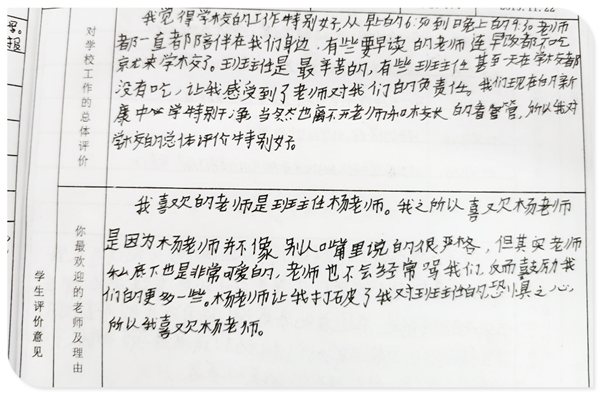 对学校工作的总体评价
我觉得学校的工作特别好,从早的6:50到晚上的9:50老师
都一直都陪伴在我们身边,有些要早读的老师连早饭都不吃
就来学校了。班主任是最辛苦的,有些班主任甚至一天在学校都
没有吃,让我感受到了老师对我们的负责任。我们现在的新
康中心学特别干净,当然也离不开老师和校长的看管,所以我对
学校的总体评价特别好。
学生评价意见
你最欢迎的老师及理由
我喜欢的老师是班主任杨老师。我之所以喜欢杨老师
是因为杨老师并不像别人嘴里说的很严格,但其实老师
私底下也是非常可爱的,老师也不会经常骂我们,反而鼓励我
们的更多一些。杨老师让我打破了我对班主任的恐惧之心
所以我喜欢杨老师。